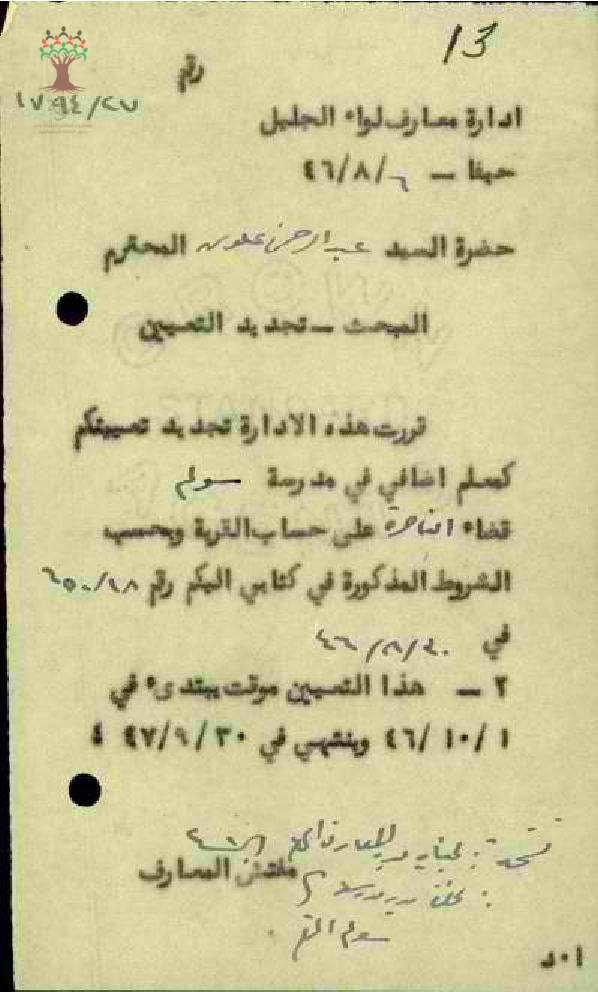 13
رقم
١٧٩٤/٢٧
ادارة معارف لواء الجليل
حيفا — ٤٦/٨/٦
حضرة السيد عبد الرحمن المحترم
المبحث — تجديد التعيين
قررت هذه الادارة تجديد تعيينكم
كمعلم اضافي في مدرسة سولم
قضاء الناصرة على حساب القرية وبحسب
الشروط المذكورة في كتابي اليكم رقم
في
٢ — هذا التعيين موقت يبتدىء في
٤٦/١٠/١ وينتهي في ٤٧/٩/٣٠
نسخة : لجناب مدير المعارف
مفتش المعارف
: مدير مدرسة
سولم
ا٠د